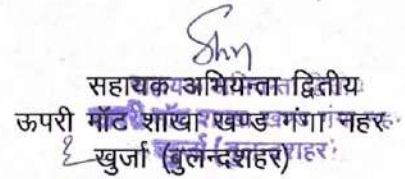 सहायक अभियन्ता द्वितीय
ऊपरी मॉट शाखा खण्ड गंगा नहर
खुर्जा (बुलन्दशहर)